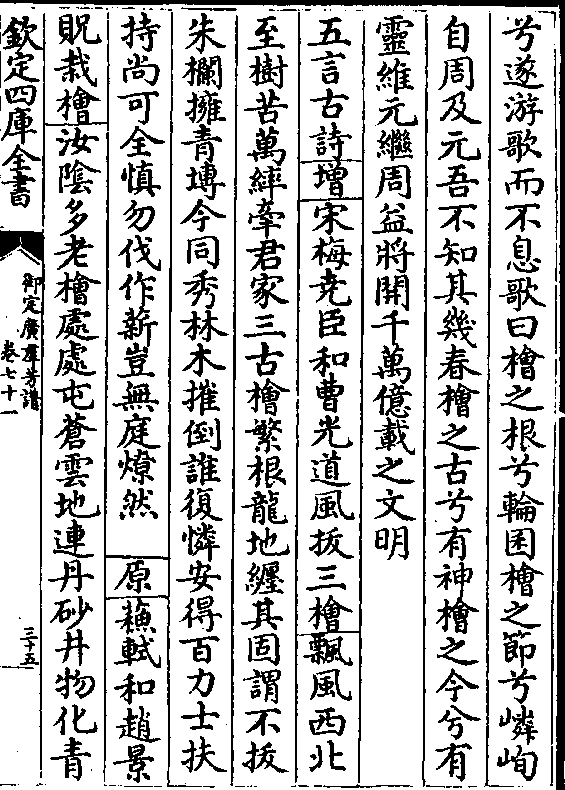 兮遂游歌而不息歌曰檜之根兮輪囷檜之節兮嶙峋
自周及元吾不知其幾春檜之古兮有神檜之今兮有
靈維元繼周益將開千萬億載之文明
五言古詩增宋梅堯臣和曹光道風拔三檜飄風西北
至樹苦萬綷牽君家三古檜繁根龍地纏其固謂不拔
朱欄擁青塼今同秀林木摧倒誰復憐安得百力士扶
持尚可全慎勿伐作薪豈無庭燎然 原蘇軾和趙景
貺栽檜汝陰多老檜處處屯蒼雲地連丹砂井物化青
欽定四庫全書
御定廣羣芳譜
卷七十一
三十五